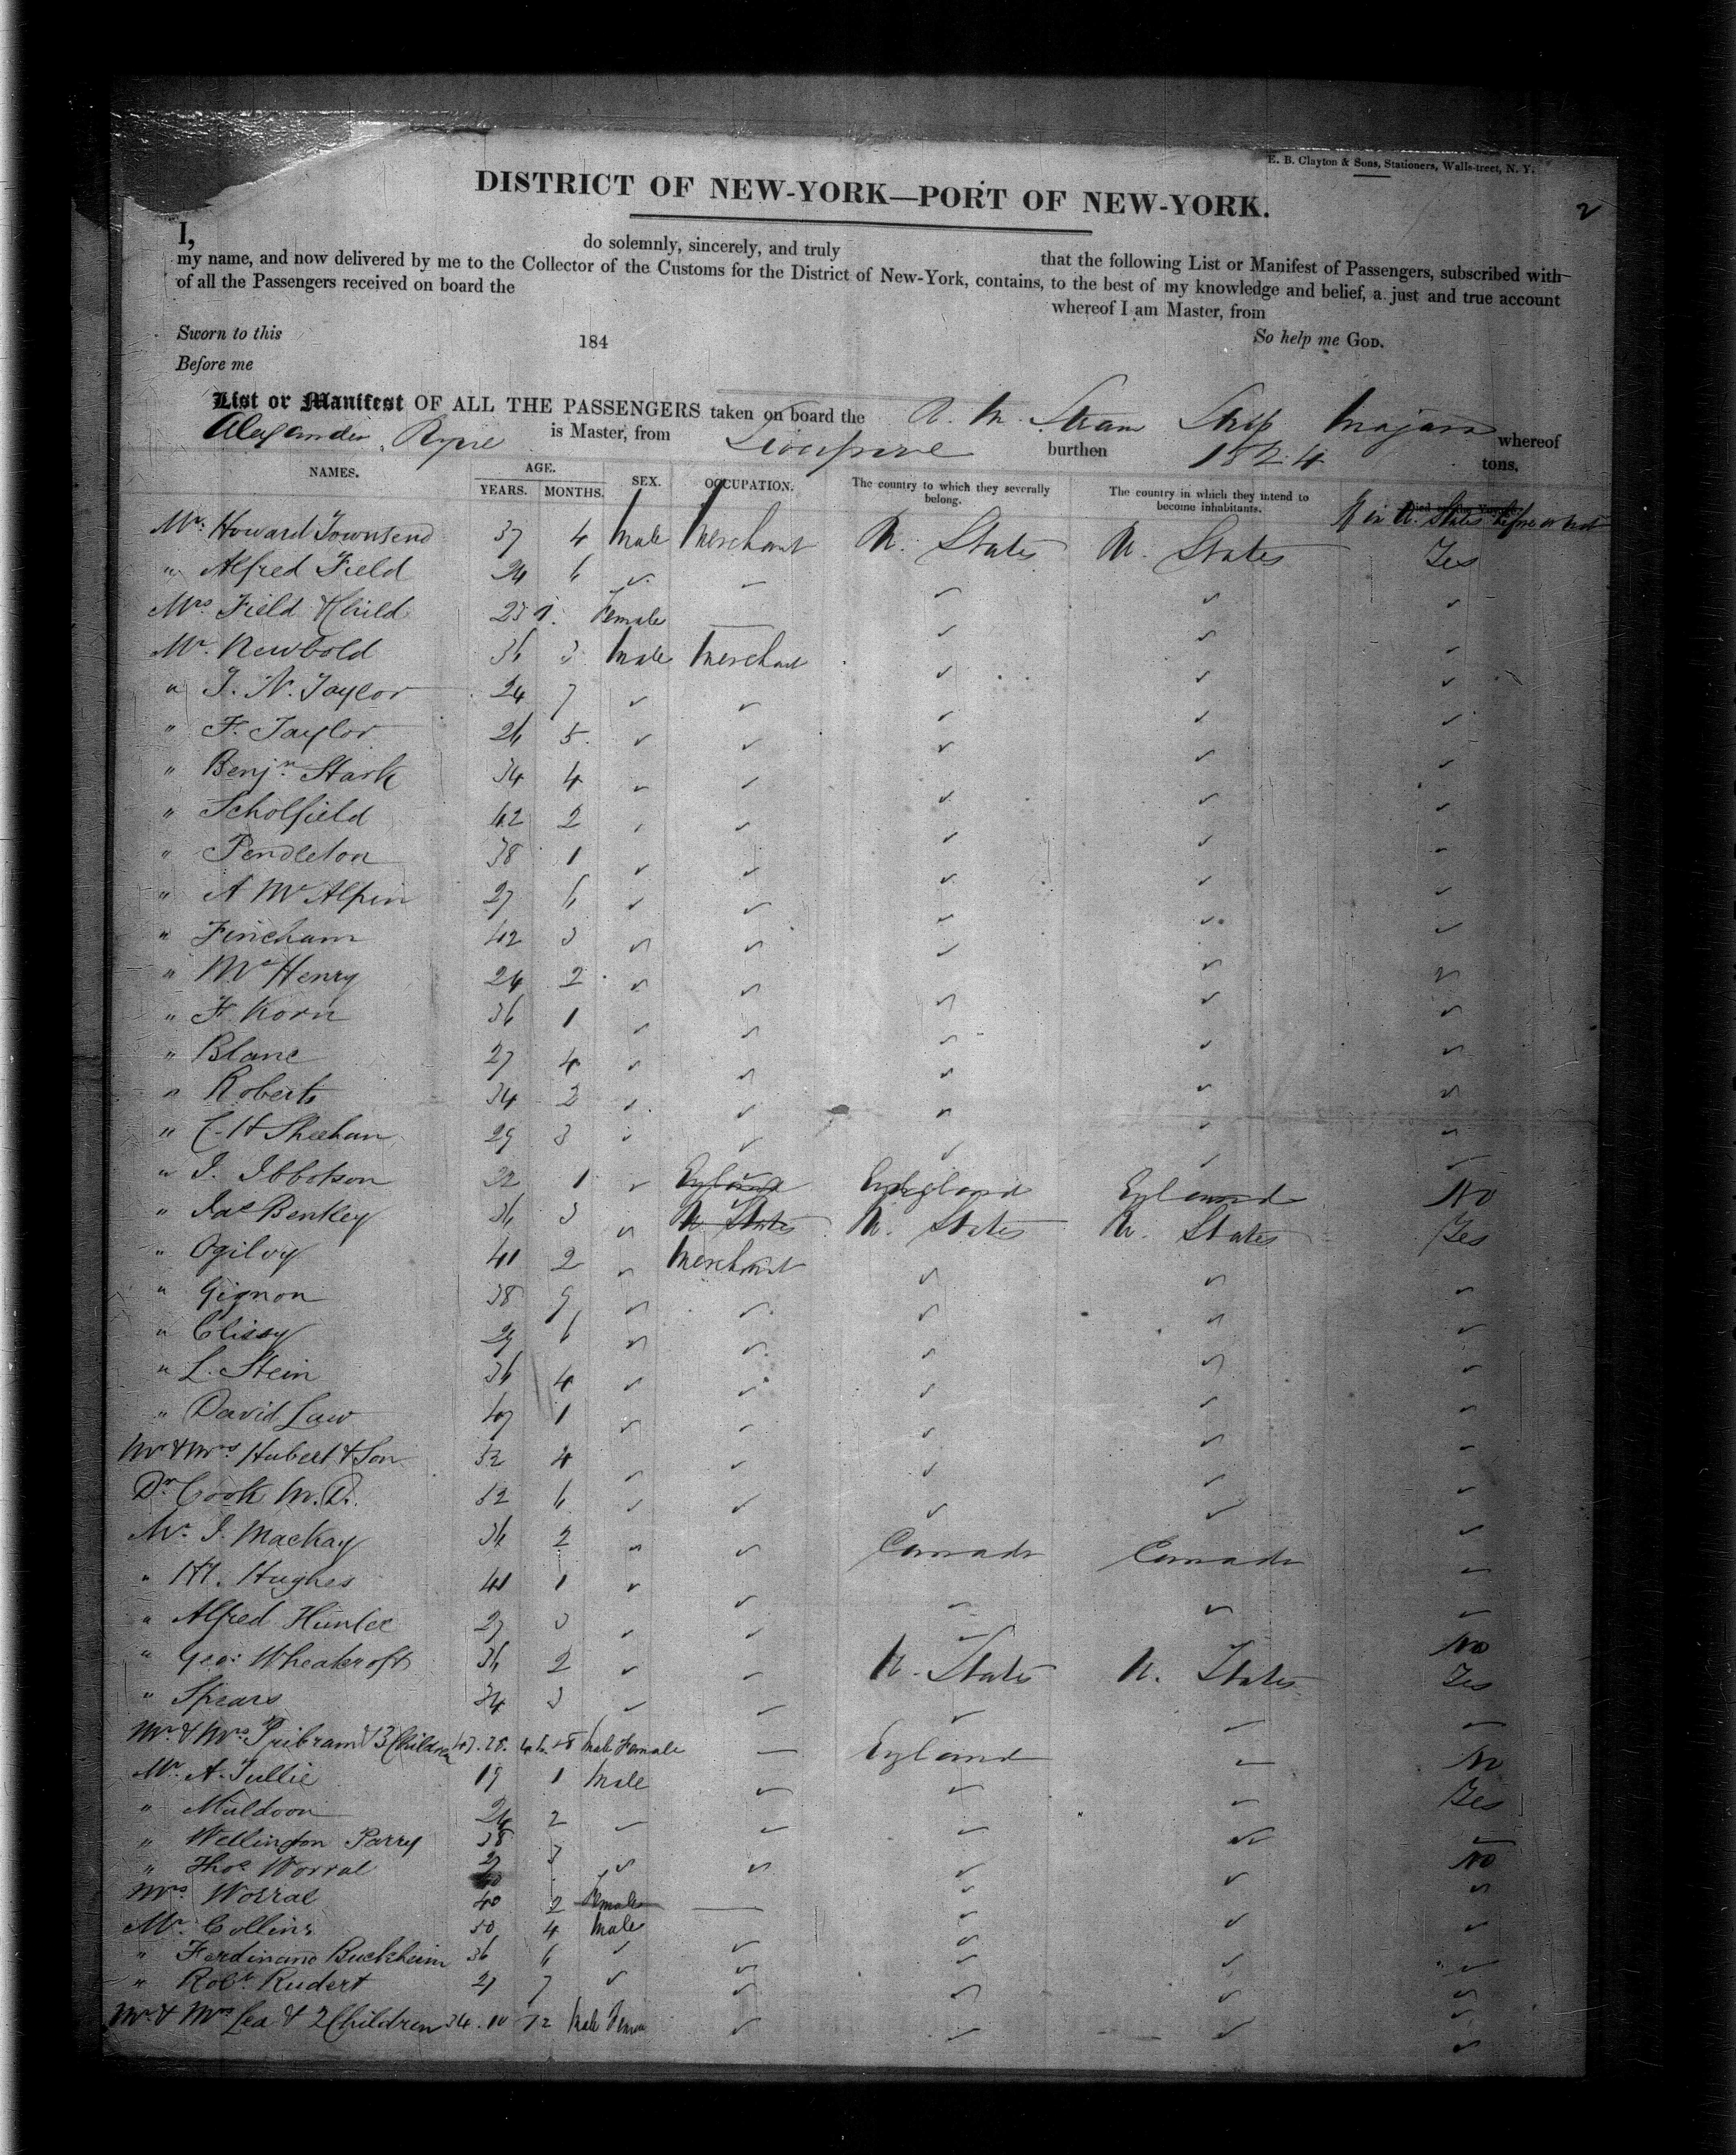 E. B. Clayton & Sons, Stationers, Walls-treet, N. Y.
DISTRICT OF NEW-YORK—PORT OF NEW-YORK.
2
I, do solemnly, sincerely, and truly that the following List or Manifest of Passengers, subscribed with
my name, and now delivered by me to the Collector of the Customs for the District of New-York, contains, to the best of my knowledge and belief, a just and true account
of all the Passengers received on board the whereof I am Master, from
Sworn to this 184 So help me GOD.
Before me
List or Manifest OF ALL THE PASSENGERS taken on board the R. M. Steam Ship Niagara whereof
Alexander Ryrie is Master, from Liverpool burthen 1824 tons.
NAMES. AGE. SEX. OCCUPATION. The country to which they severally belong. The country in which they intend to become inhabitants.
YEARS. MONTHS. If in U. States before or not
Mr. Howard Townsend 37 4 Male Merchant U. States U. States Yes
" Alfred Field 24 6
Mrs Field & Child 23 1. Female
Mr. Newbold 36 3 Male Merchant
" J. N. Taylor 24 7
" F. Taylor 26 5
" Benjn. Stark 34 4
" Scholfield 42 2
" Pendleton 38 1
" A McAlpin 27 6
" Fincham 42 3
" McHenry 24 2
" F. Korn 36 1
" Blanc 27 4
" Roberts 34 2
" C. H Sheehan 29 3
" J. Ibbotson 22 1 England England England No
" Jas Bentley 36 3 U States U. States U. States Yes
" Ogilvy 41 2 Merchant
" Gignon 38 9
" Clissy 29 6
" L. Stein 36 4
" David Law 47 1
Mr & Mrs Hubert & Son 32 4
Dr. Cook M.D. 52 6
Mr. J. Mackay 36 2 Canada Canada
" H. Hughes 41 1
" Alfred Hunter 27 3 No
" Geo: Wheatcroft 36 2 U. States U. States Yes
" Spears 34 3
Mr & Mrs Pribram & 3 Children Male Female England No
Mr. A. Tullie 19 1 Male Yes
" Muldoon 26 2
" Wellington Parry 38 3 No
" Thos Worral 27
Mrs Worral 40 2 Female
Mr. Collins 50 4 Male
" Ferdinand Buckheim 36 6
" Robt. Rudert 27 7
Mr & Mrs Lea & 2 Children 34 Male Female